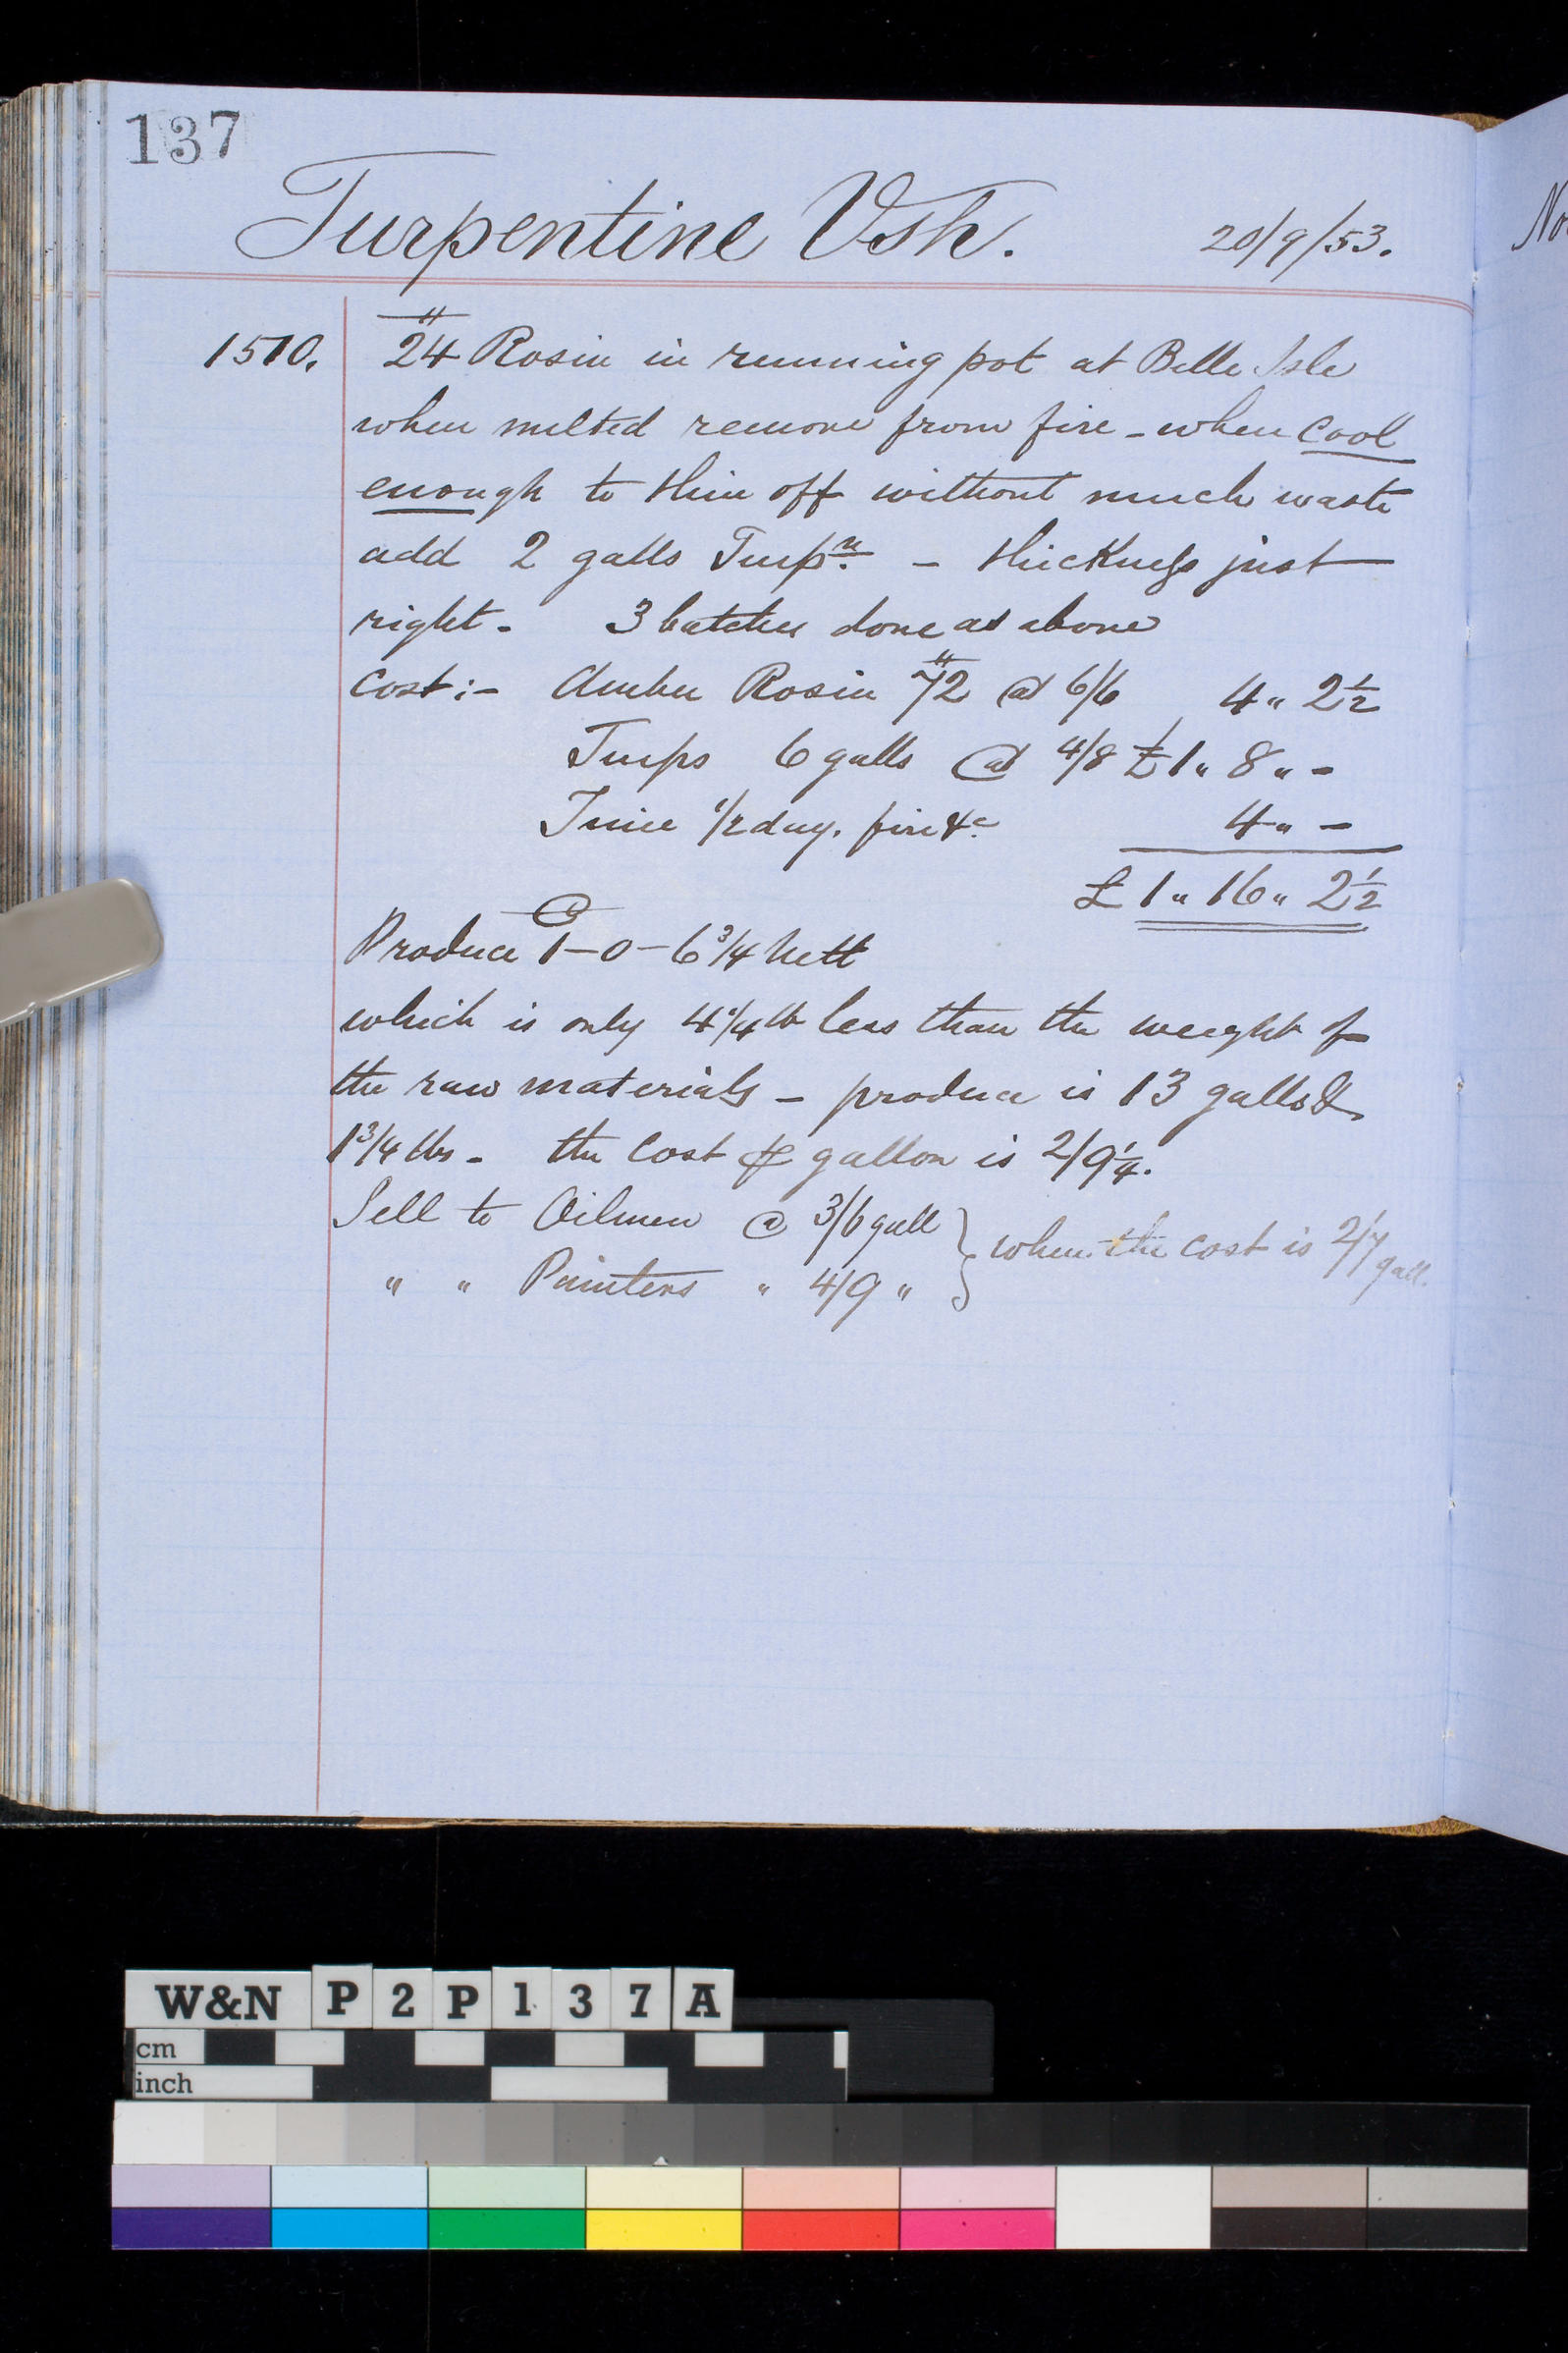 137
Turpentine Vsh. 20/9/53.
1510. 24# Rosin in running pot at Belle Isle
when melted remove from fire - when cool
enough to thin off without much waste
add 2 galls Turpn. - thickness just
right. 3 batches done as above
Cost:- Amber Rosin 72# @ 6/6 4 " 2½
Turps 6 galls @ 4/8 £1 " 8 " -
Time 1/2 day. fire &c. 4 " -
£1 " 16 " 2½
Produce 1-0-6¾ Nett
which is only 4¼ lb less than the weight of
the raw materials - produce is 13 galls &
1¾ lbs - the Cost ⅌ gallon is 2/9¼.
Sell to Oilmen @ 3/6 gall } when the cost is 2/7 gall.
" " Painters " 4/9 "
No
W&N P2P137A
cm
inch